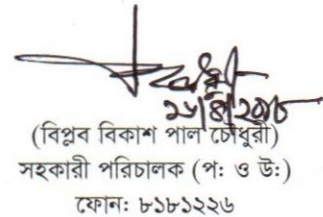 ২৬/৪/২০১৮
(বিপ্লব বিকাশ পাল চৌধুরী)
সহকারী পরিচালক (প: ও উ:)
ফোন: ৮১৮১২২৬